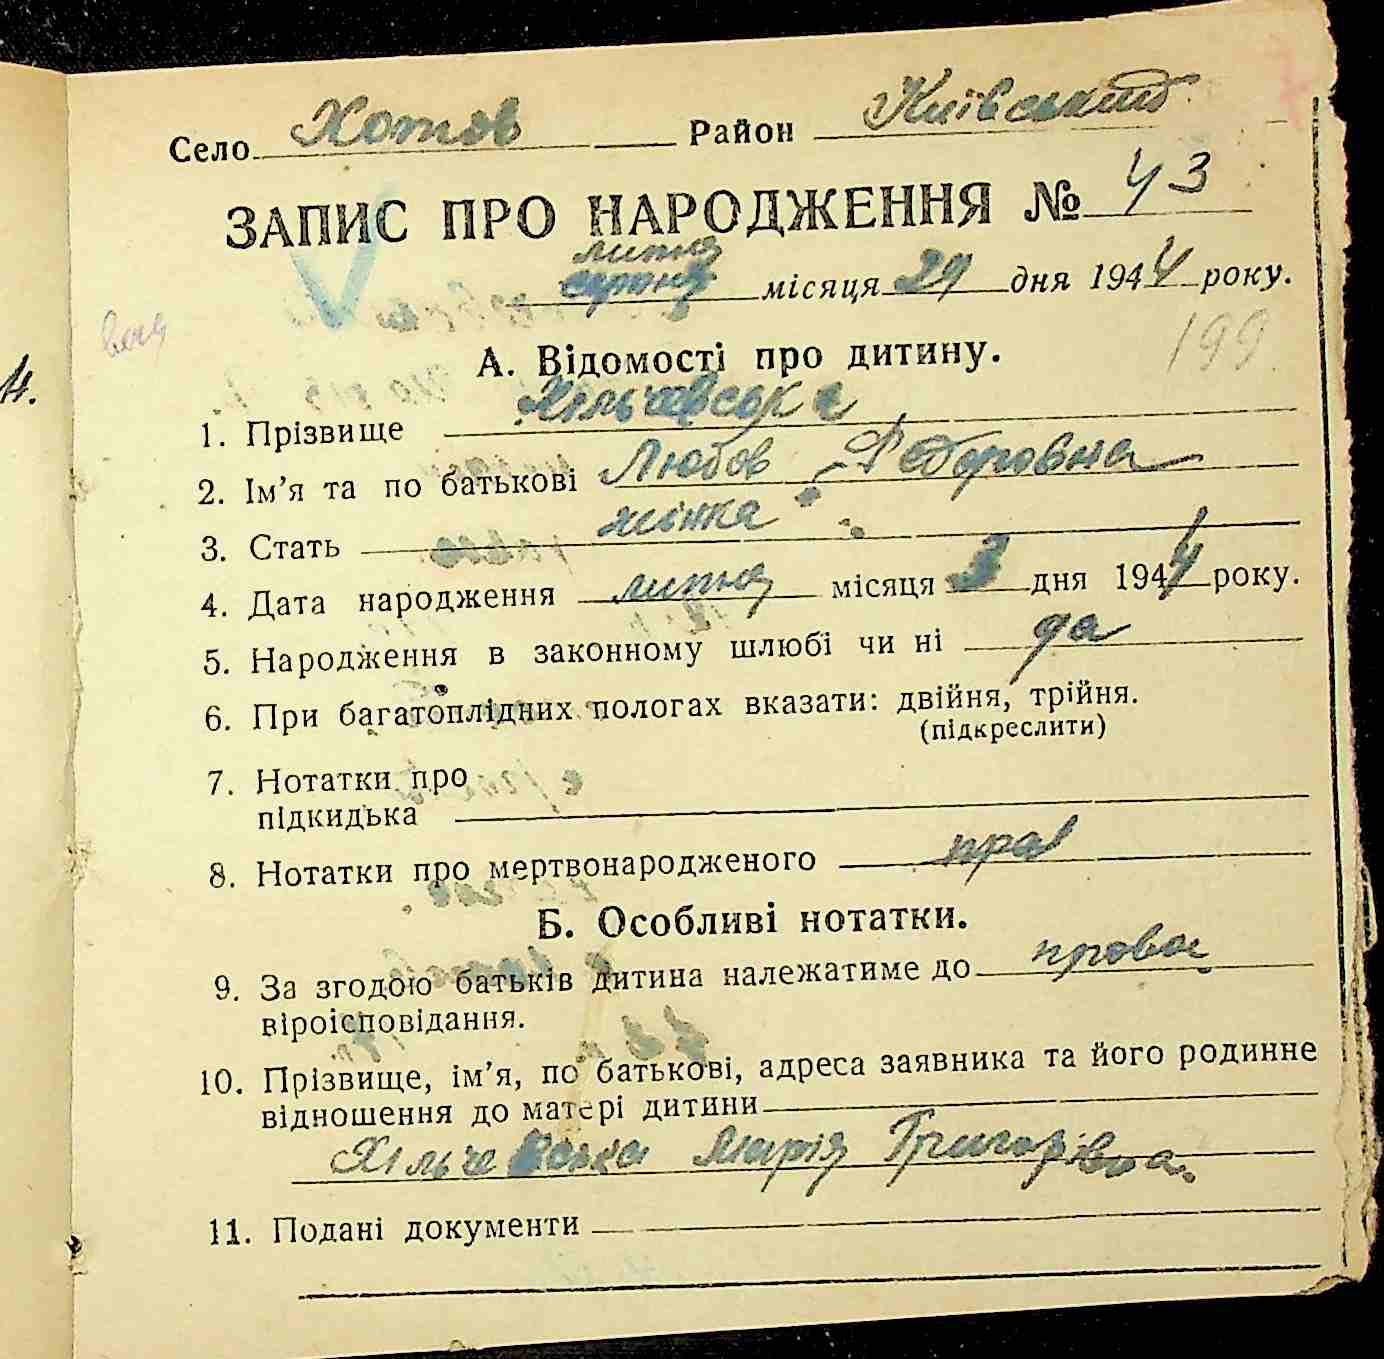 Село Хотов Район Київський
ЗАПИС ПРО НАРОДЖЕННЯ № 43
липня
серпня місяця 29 дня 1944 року.
199
А. Відомості про дитину.
1. Прізвище Хільчевська
2. Ім'я та по батькові Любов Федоровна
3. Стать жінка
4. Дата народження липня місяця 3 дня 1944 року.
5. Народження в законному шлюбі чи ні да
6. При багатоплідних пологах вказати: двійня, трійня.
(підкреслити)
7. Нотатки про
підкидька
8. Нотатки про мертвонародженого
Б. Особливі нотатки.
9. За згодою батьків дитина належатиме до правос.
віроісповідання.
10. Прізвище, ім'я, по батькові, адреса заявника та його родинне
відношення до матері дитини
Хільчевська Марія Григорівна.
11. Подані документи